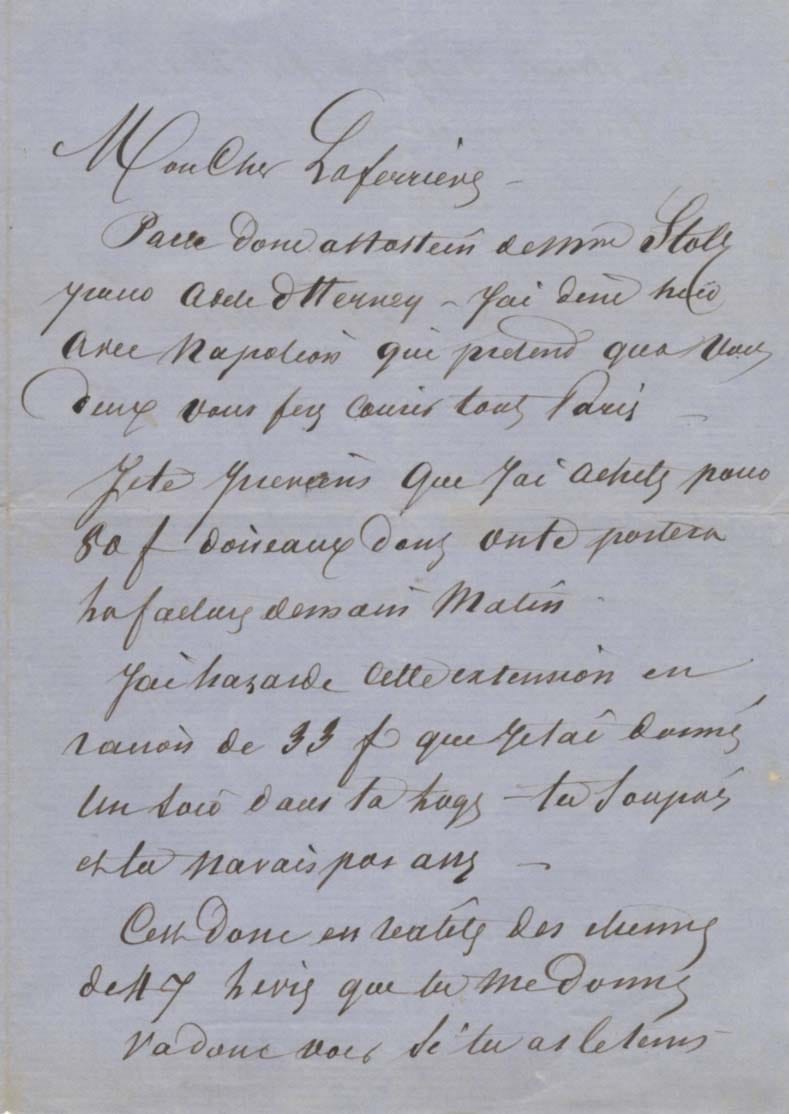 Mon Cher Laferrière –
Passe donc de mme Stolz
pour – J'ai diné hier
avec Napoléon qui prétend qua vous
deux vous fery courir tout Paris –
Je te préviens que J'ai acheté pour
80 f doiseaux dont on te portera
la facture demain Matin
J'ai hazardé cette extension en
raison de 33 f que Je tai donné
un soir dans ta loge – tu soupais
et tu navais pas –
Cest donc en realité des étrennes
de 47 livres que tu me donnes
va donc voir Si tu as le tems